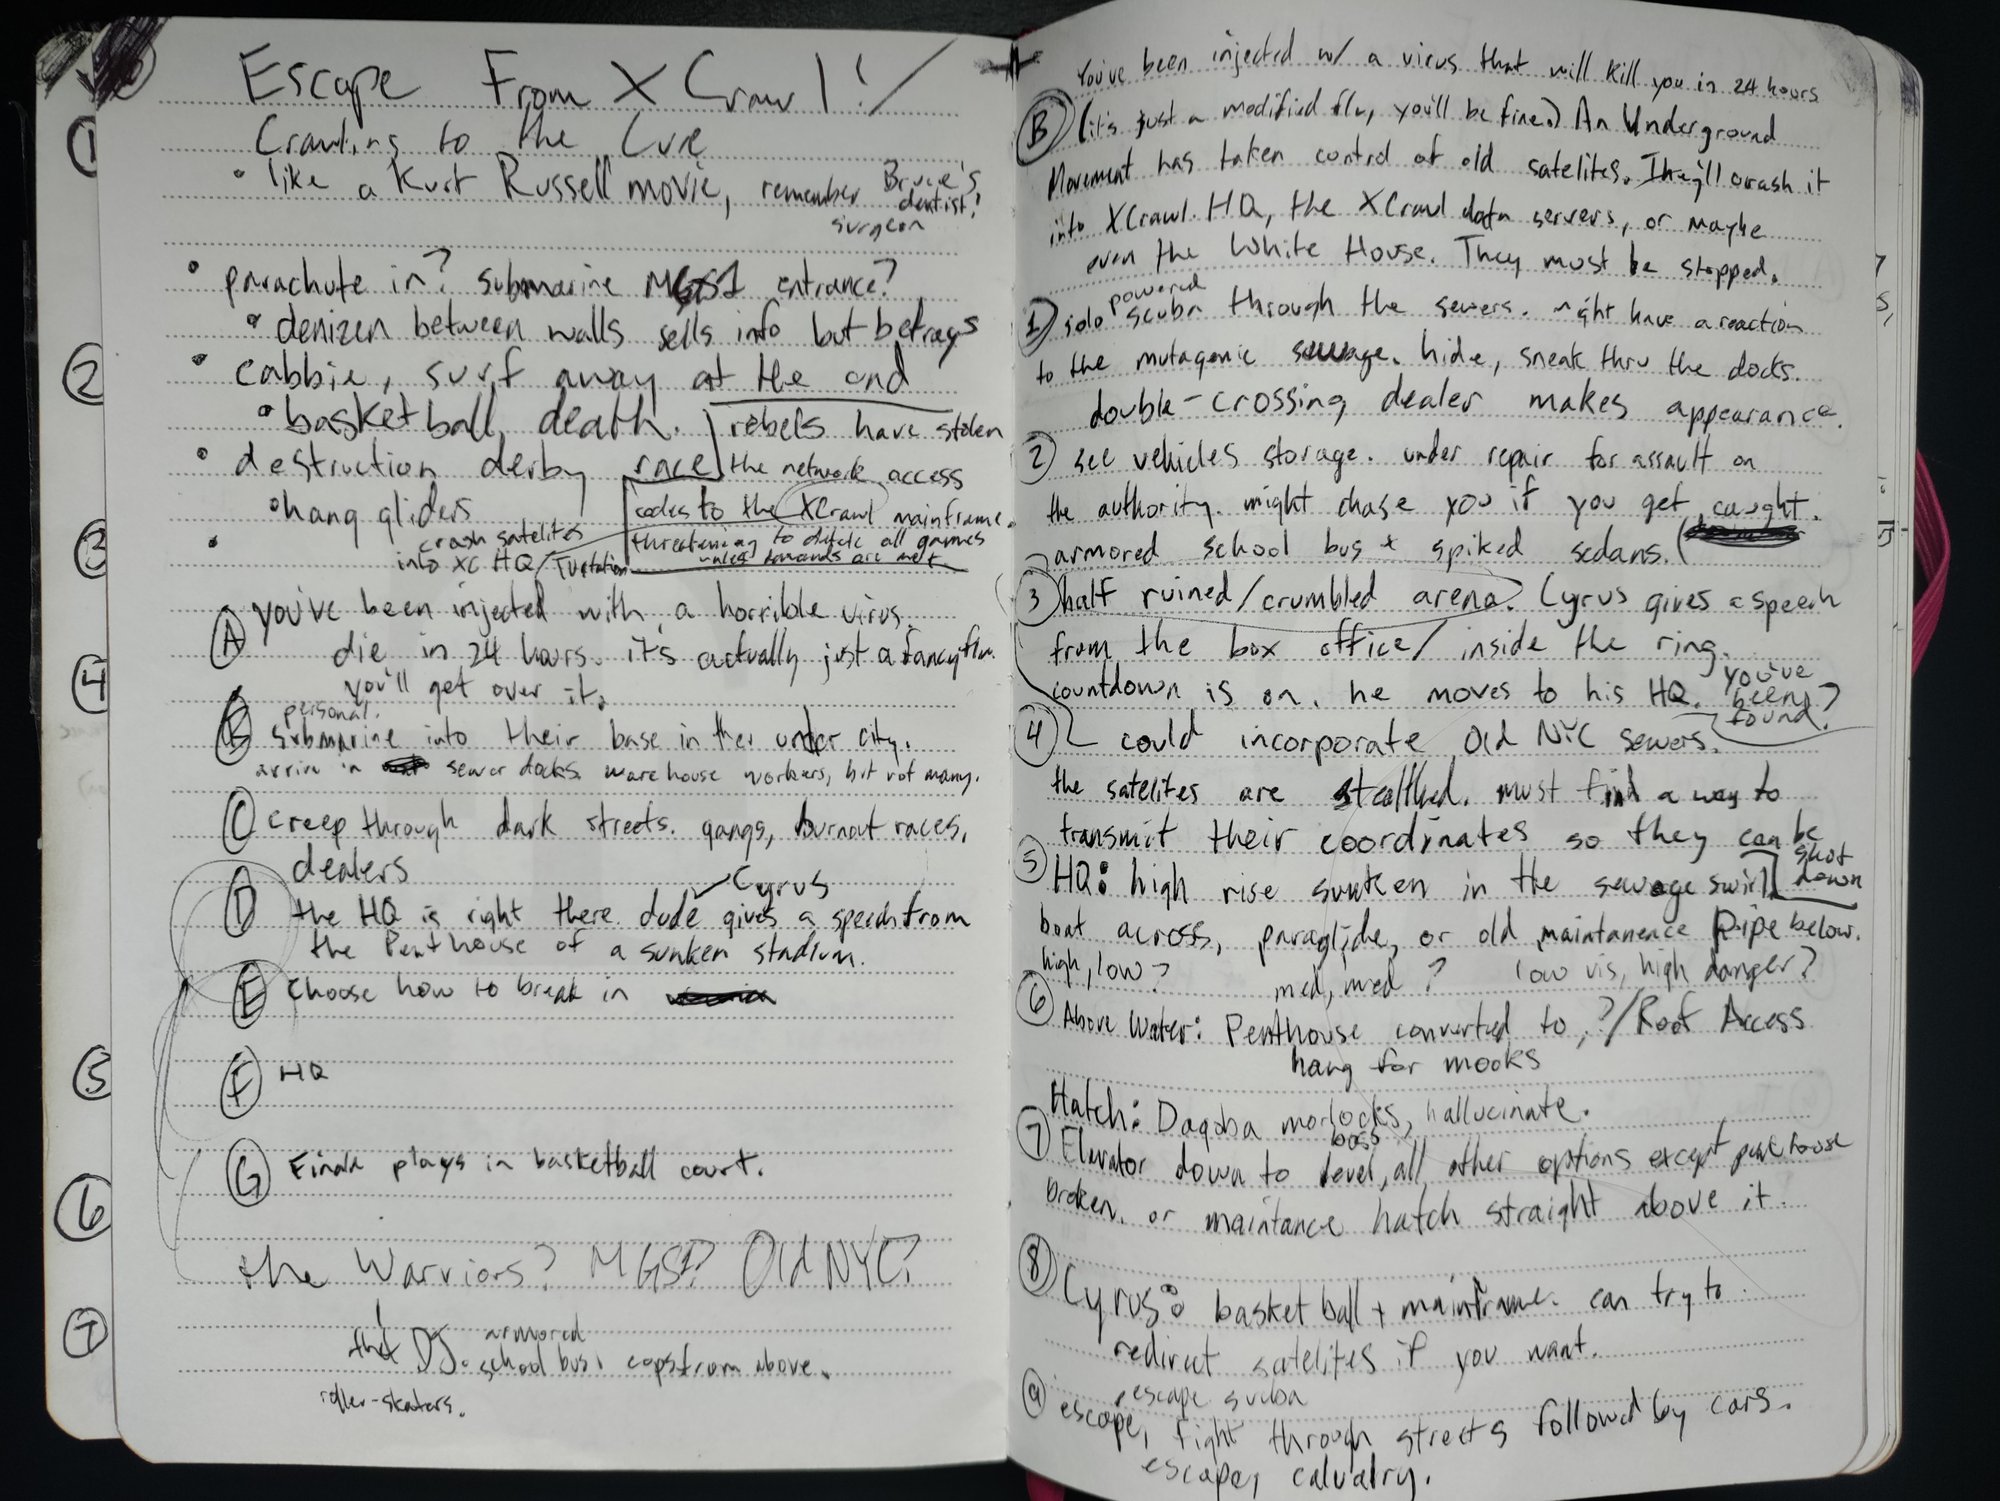 Escape From X Crawl!
Crawling to the Cure
• like a Kurt Russell movie, remember Bruce's dentist!
surgeon
• parachute in? submarine MGS1 entrance?
• denizen between walls sells info but betrays
• cabbie, surf away at the end
• basketball death.
rebels have stolen
• destruction derby race
the network access
codes to the XCrawl mainframe.
threatening to delete all games
unless demands are met
• hang gliders
•
crash satelites
into XC HQ/
A you've been injected with a horrible virus.
die in 24 hours. it's actually just a fancy flu.
you'll get over it.
B personal
submarine into their base in the under city.
arrive in sewer docks. warehouse workers, but not many.
C creep through dark streets. gangs, burnout races,
dealers
Cyrus
D the HQ is right there. dude gives a speech from
the Penthouse of a sunken stadium.
E choose how to break in
F HQ
G Finale plays in basketball court.
the Warriors? MGS1? Old NYC?
that DJ. armored
school bus. cops from above.
roller-skaters.
1
2
3
4
5
6
7
You've been injected w/ a virus that will kill you in 24 hours
B (it's just a modified flu, you'll be fine.) An Underground
Movement has taken control of old satelites. They'll crash it
into XCrawl HQ, the XCrawl data servers, or maybe
even the White House. They must be stopped.
powered
1 solo scuba through the sewers. might have a reaction
to the mutagenic sewage. hide, sneak thru the docks.
double-crossing dealer makes appearance.
2 see vehicles storage. under repair for assault on
the authority. might chase you if you get caught.
armored school bus + spiked sedans. (
3 half ruined/crumbled arena. Cyrus gives a speech
from the box office/ inside the ring.
countdown is on. he moves to his HQ. you've been found?
4 could incorporate Old NYC sewers.
the satelites are stealthed. must find a way to
transmit their coordinates so they can be shot down
5 HQ: high rise sunken in the sewage swirl
boat across, paraglide, or old maintanence Pipe below.
high, low? med, med? low vis, high danger?
6 Above Water: Penthouse converted to ?/Roof Access
hang for mooks
Hatch: Dagoba morlocks, hallucinate.
boss
7 Elevator down to level, all other options except penthouse
broken. or maintance hatch straight above it.
8 Cyrus: basketball + mainframe. can try to
redirect satelites if you want.
escape scuba
9 escape, fight through streets followed by cars.
escape, calvalry.